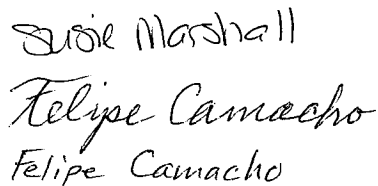 Susie Marshall
Felipe Camacho
Felipe Camacho